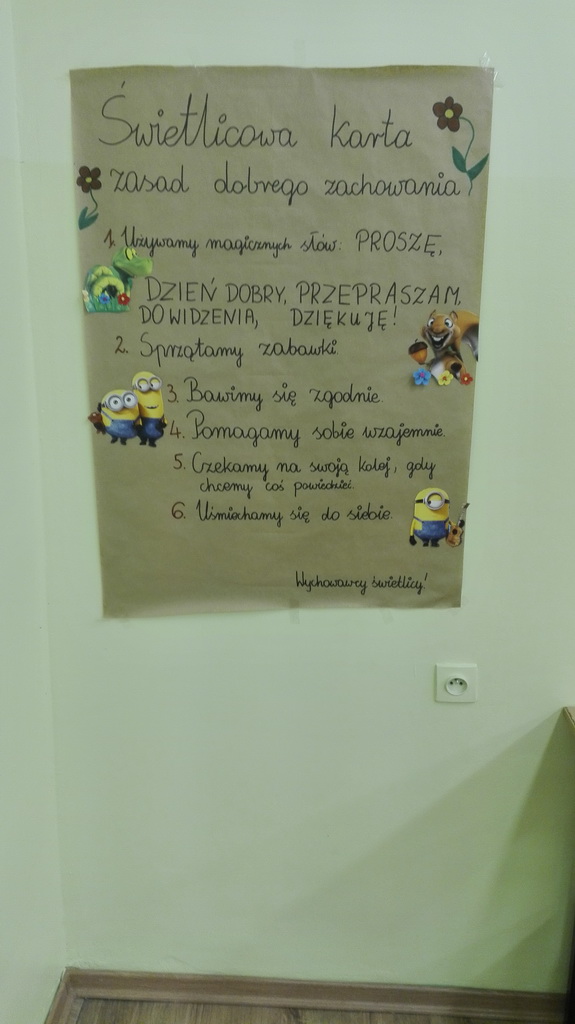 Świetlicowa karta
zasad dobrego zachowania
1. Używamy magicznych słów: PROSZĘ,
DZIEŃ DOBRY, PRZEPRASZAM,
DO WIDZENIA, DZIĘKUJĘ!
2. Sprzątamy zabawki.
3. Bawimy się zgodnie.
4. Pomagamy sobie wzajemnie.
5. Czekamy na swoją kolej, gdy
chcemy coś powiedzieć.
6. Uśmiechamy się do siebie.
Wychowawcy świetlicy!